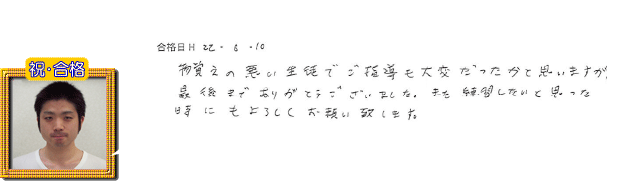 祝・合格
合格日 H 22・6・10
物覚えの悪い生徒でご指導も大変だったかと思いますが、
最後までありがとうございました。また練習したいと思った
時にもよろしくお願い致します。